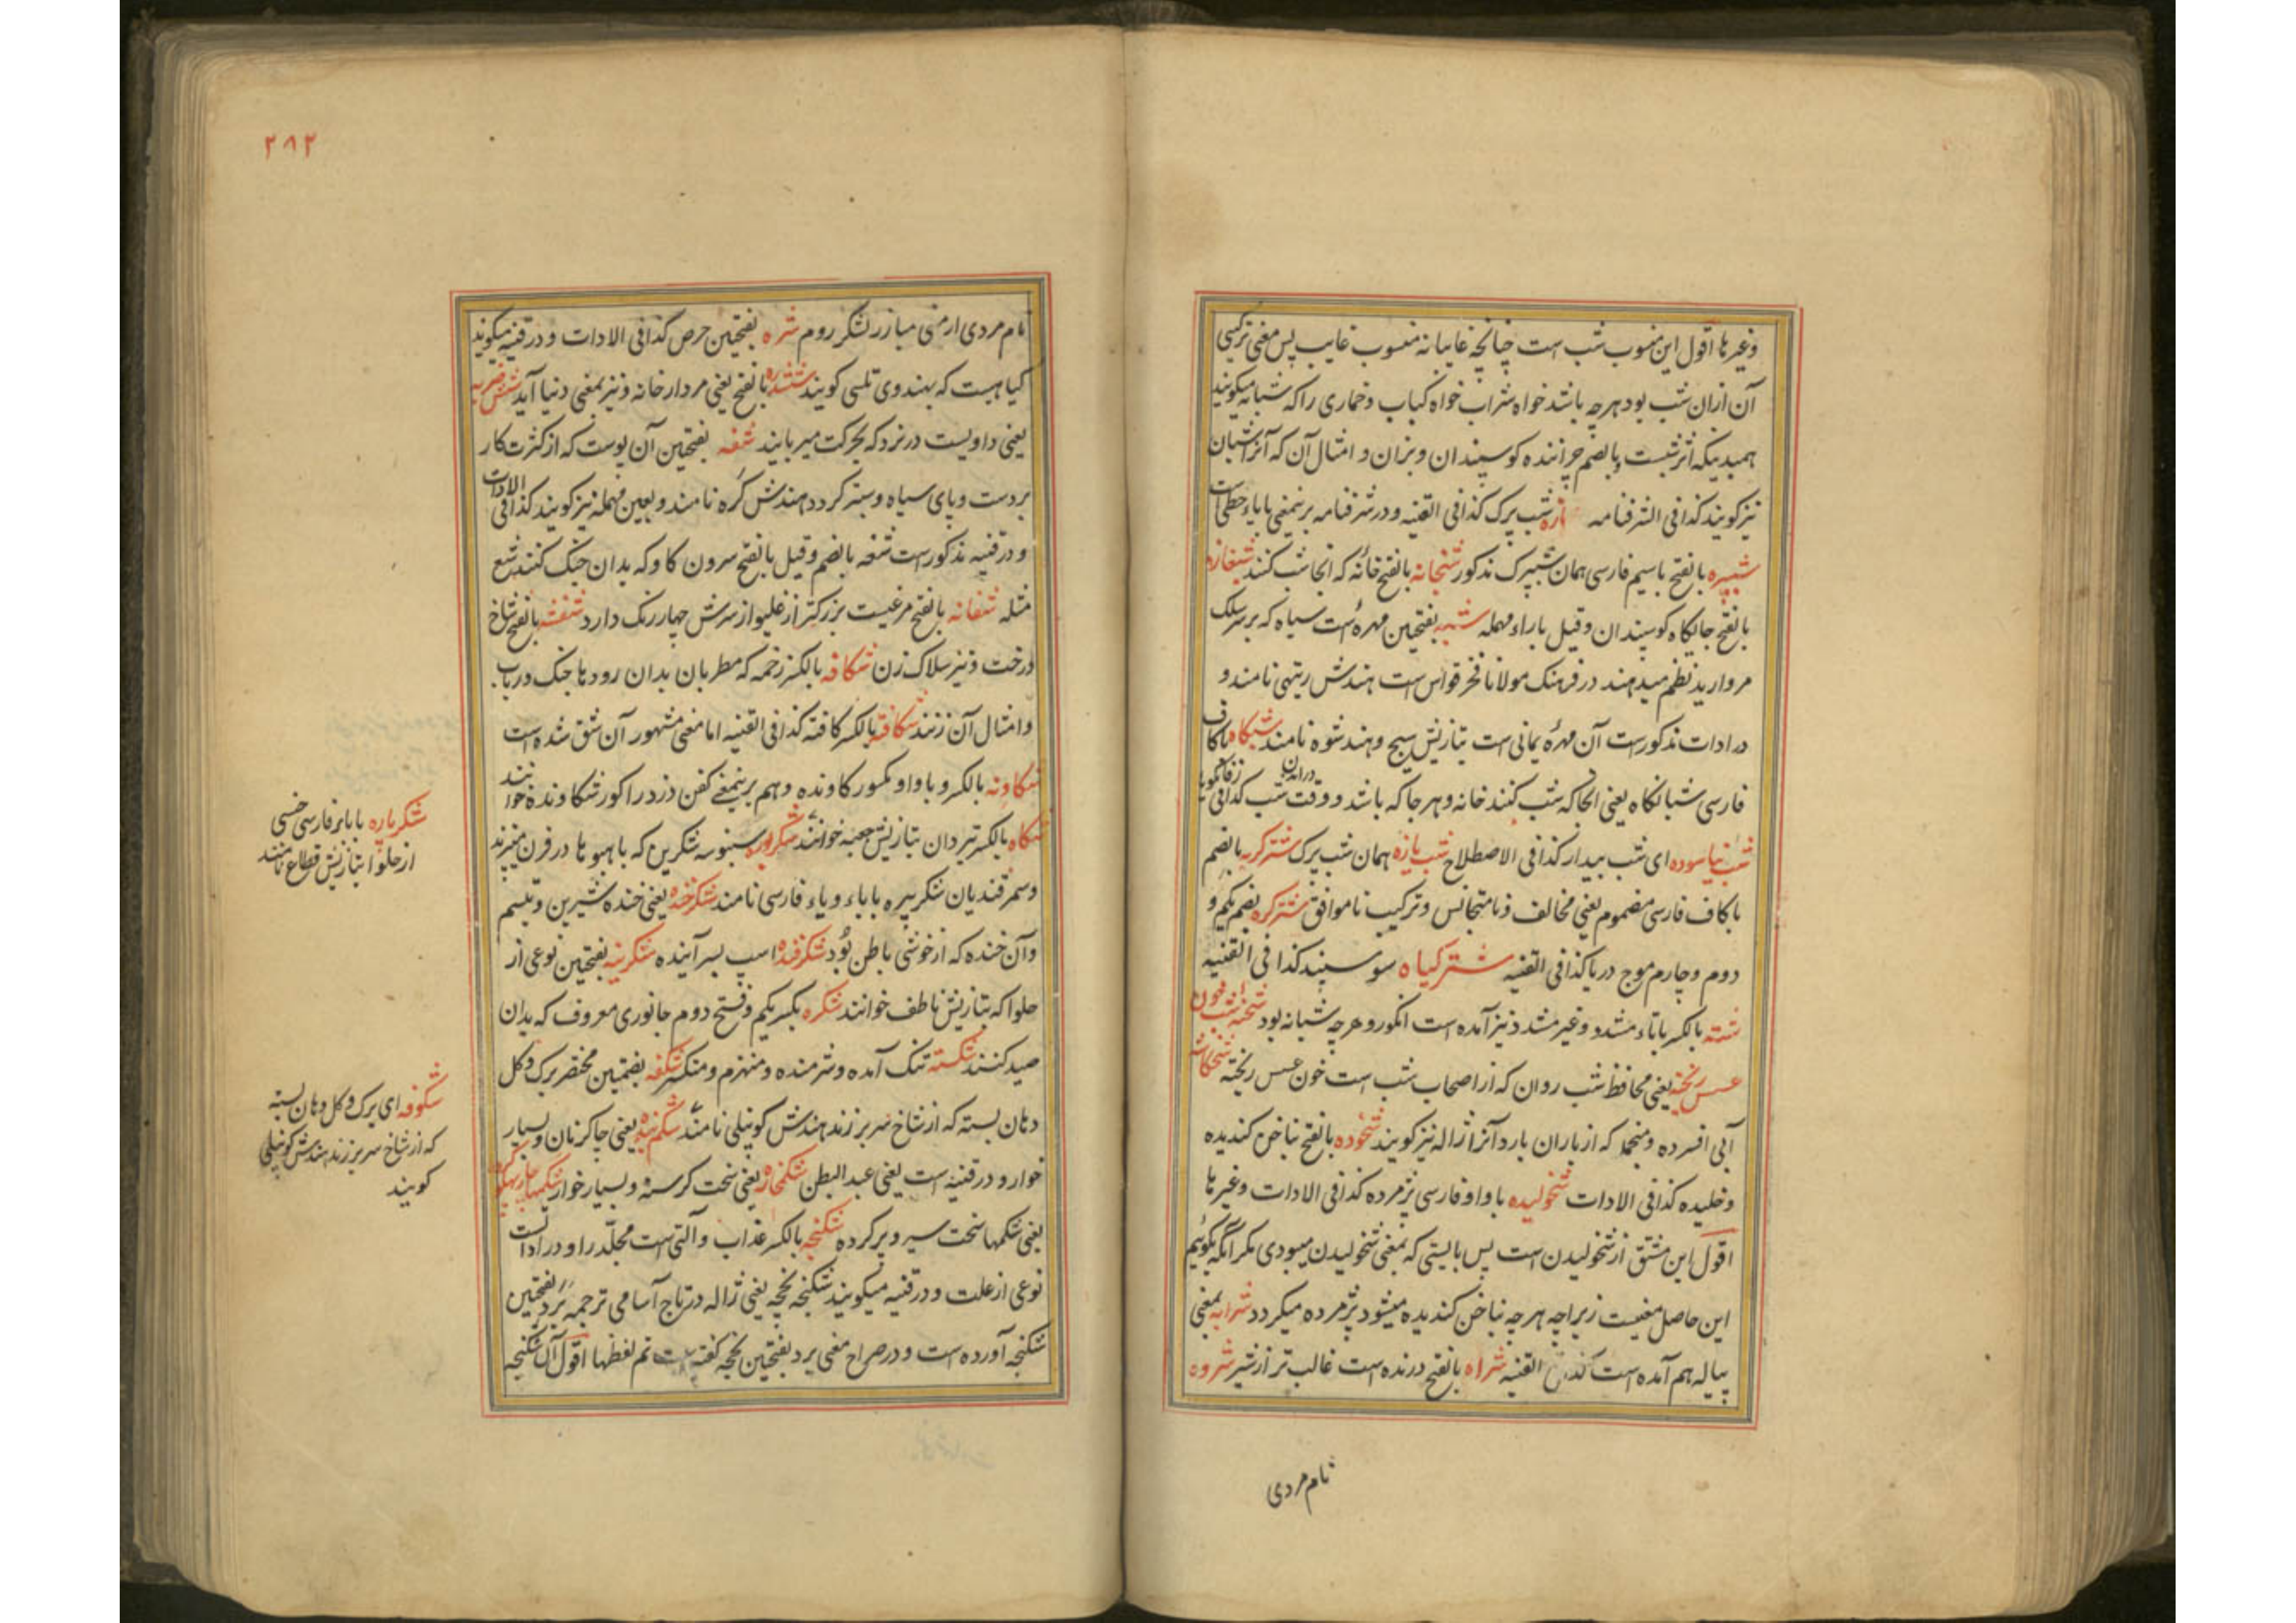 وغیرها اقول این منسوب شب است چنانچه غایبانه منسوب غایب پس معنی ترکیبی
آن ازان شب بود هرچه باشد خواه شراب خواه کباب و خماری را که شبانه میکویند
همبدینکه اثر شبست وبالضم چراننده کوسپندان وبزان و امثال آن که آنرا شبان
نیز کویند کذا فی الشرفنامه شب پرک کذا فی القنیه و در شرفنامه برینمعنی بایاء حطی است
شبپره بالفتح باسیم فارسی همان شپرک مذکور شبخانه بالفتح خانه که آنجا شب کنند شبغازه
بالفتح جایکاه کوسپندان وقیل باراء مهمله شبه بفتحتین مهره است سیاه که بر سلک
مروارید نظم میدهند در فرهنک مولانا فخر قواس است هندش نامند و
در ادات مذکورست آن مهره یمانی است بتازیش سبج و هند شوه نامند شبکاه باکاف
فارسی شبانکاه یعنی آنجا که شب کنند خانه و هرجا که باشد و وقت شب کذا فی
شب نیاسوده ای شب بیدار کذا فی الاصطلاح شب یازه همان شب پرک شترکربه بالضم
باکاف فارسی مضموم یعنی مخالف و نامتجانس و ترکیب ناموافق شترکره بضم یکم و
دوم وچارم موج دریا کذا فی القنیه شترکیاه سوسپند کذا فی القنیه
شته بالکسر باتاء مشدد وغیر مشدد نیز آمده است انکور و هرچه شبانه بود شحنه شب خون
عسس ریخته یعنی محافظ شب روان که از اصحاب شب است خون عسس ریخته شخکاسه
آبی افسرده و منجمد که از باران بارد آنرا ژاله نیز کویند شخوده بالفتح بناخن کندیده
وخلیده کذا فی الادات شخولیده باواو فارسی پژمرده کذا فی الادات وغیرها
اقول این مشتق از شخولیدن است پس بایستی که بمعنی شخولیدن میبودی مکر آنکه بکوئیم
این حاصل معنیست زیراچه هرچه بناخن کندیده میشود پژمرده میکردد شرابه بمعنی
پیاله هم آمده است کذا فی القنیه شراه بالفتح درنده است غالب تر از شیر شروه
نام مردی
۲۸۲
نام مردی ارمنی مبارز لشکر روم شره بفتحتین حرص کذا فی الادات و در قنیه میکویند
کیاهیست که بهندوی تلسی کویند ششدره بالفتح یعنی مردار خانه ونیز بمعنی دنیا آید شش ضربه
یعنی داویست در نرد که بحرکت میربایند شغه بفتحتین آن پوست که از کثرت کار
بر دست و پای سیاه و سبتر کردد هندش کره نامند و بعین مهمله نیز کویند کذا فی الادات
و در قنیه مذکورست شغه بالضم وقیل بالفتح سرون کاو که بدان جنک کنند شع
مثله شفانه بالفتح مرغیست بزرکتر از غلیواز سرش چهار رنک دارد شفشه بالفتح شاخ
درخت ونیز سلاک زن شکافه بالکسر زخمه که مطربان بدان رودها چنک و رباب
و امثال آن زنند شکافته بالکسر کافته کذا فی القنیه اما معنی مشهور آن شق شده است
شکاونه بالکسر و باواو مکسور کاونده وهم برینمعنی کفن دزد را کور شکاونده خوانند
شکاه بالکسر تیردان بتازیش جعبه خوانند سنبوسه شکرین که در فرن میپزند
وسمرقندیان شکرپیره باباء ویاء فارسی نامند شکرخنده یعنی خنده شیرین و تبسم
وآن خنده که از خوشی باطن بود شکرفنده اسپ بسر آینده شکرینه بفتحتین نوعی از
حلوا که بتازیش ناطف خوانند شکره بکسر یکم وفتح دوم جانوری معروف که بدان
صید کنند شکسته تنک آمده و شرمنده و منهزم و منکسر شکفه بضمتین مختصر برک وکل
دهان بسته که از شاخ سر برزند هندش کوپنلی نامند شکم بنده یعنی چاکر نان و بسیار
خوار و در قنیه است یعنی عبد البطن یعنی سخت کرسنه و بسیار خوار
یعنی شکمها سخت سیر و پر کرده شکنجه بالکسر عذاب و آلتی است مجلد را و در ادات
نوعی از علت و در قنیه میکویند شکنجه یخچه یعنی ژاله در تاج آسامی ترجمه برد بفتحتین
شکنجه آورده است و در صراح معنی برد بفتحتین یخچه کفته است تم لفظها اقول آن شکنجه
شکرپاره باباء فارسی جنسی
از حلوا بتازیش قطاع نامند
شکوفه ای برک وکل دهان بسته
که از شاخ سر برزند هندش کوپنلی
کویند